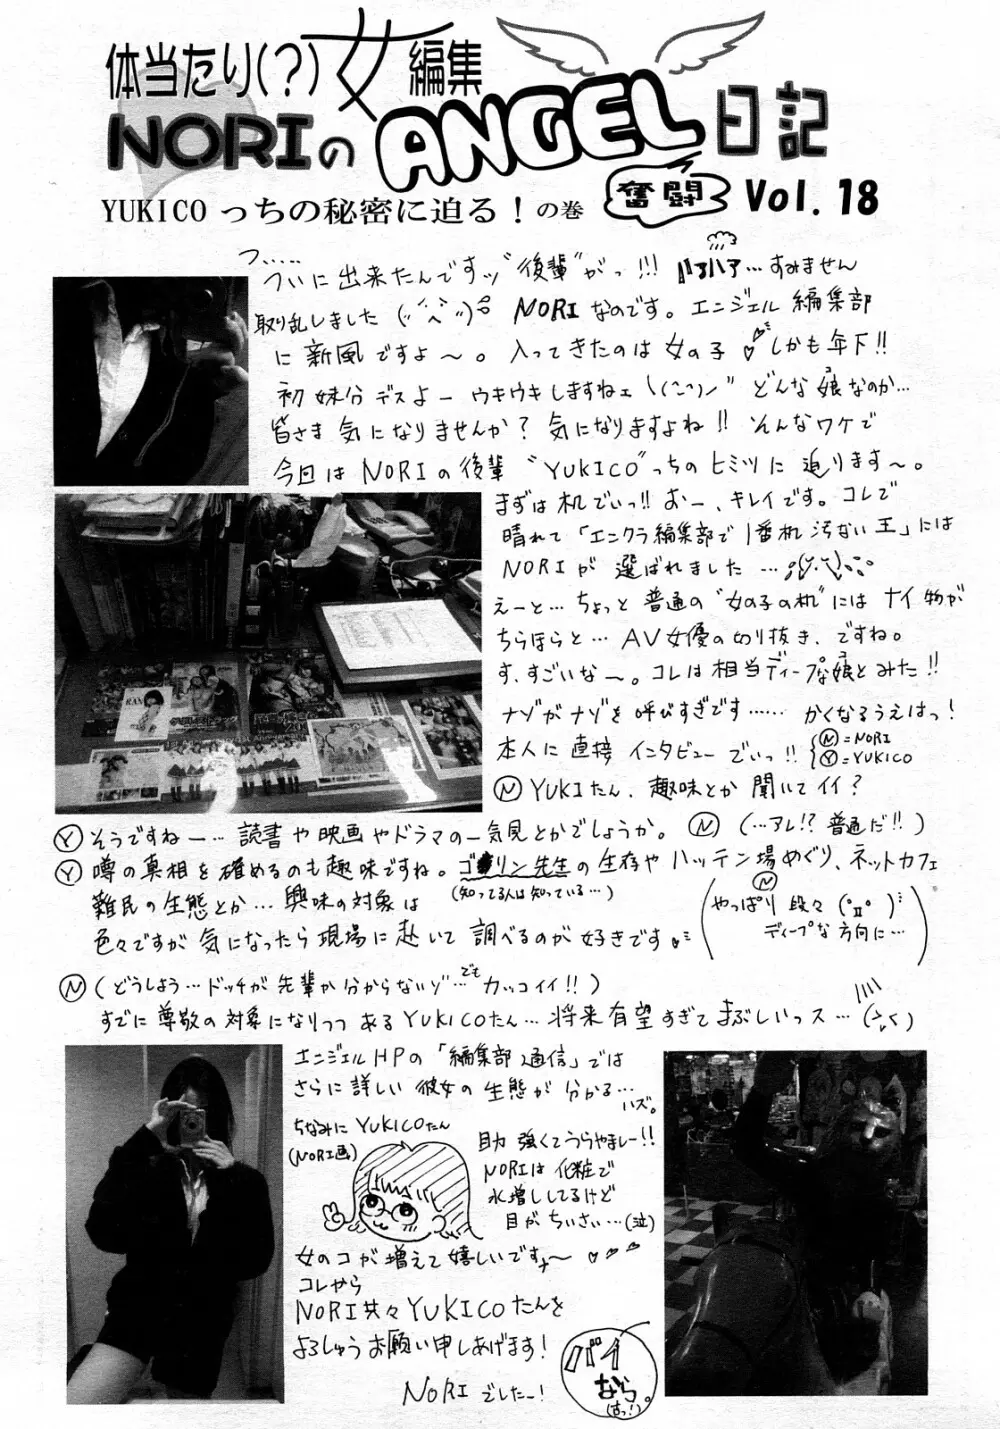 体当たり(?)女編集
NORIのANGEL日記
奮闘
Vol. 18
YUKICOっちの秘密に迫る！の巻
つ……
ついに出来たんですッ“後輩”がっ!!! ハァハァ…すみません
取り乱しました NORIなのです。エンジェル編集部
に新風ですよ〜。入ってきたのは女の子 しかも年下!!
初妹分デスよー ウキウキしますねェ どんな娘なのか…
皆さま気になりませんか？気になりますよね!! そんなワケで
今回はNORIの後輩“YUKICO”っちのヒミツに迫ります〜。
まずは机でぃっ!! おー、キレイです。コレで
晴れて「エンクラ編集部で1番机汚ない王」には
NORIが選ばれました…
えーと…ちょっと普通の“女の子の机”にはナイ物が
ちらほらと…AV女優の切り抜き、ですね。
す、すごいな〜。コレは相当ディープな娘とみた!!
ナゾがナゾを呼びすぎです…… かくなるうえはっ！
本人に直接インタビューでぃっ!!
Ⓝ=NORI
Ⓨ=YUKICO
Ⓝ YUKIたん、趣味とか聞いてイイ？
Ⓨ そうですねー…読書や映画やドラマの一気見とかでしょうか。 Ⓝ (…アレ!? 普通だ!!)
Ⓨ 噂の真相を確めるのも趣味ですね。ゴ●リン先生の生存やハッテン場めぐり、ネットカフェ
(知ってる人は知っている…)
難民の生態とか…興味の対象は
色々ですが気になったら現場に赴いて調べるのが好きです
Ⓝ
(やっぱり段々
ディープな方向に…)
Ⓝ (どうしよう…ドッチが先輩か分からないゾ…でもカッコイイ!!)
すでに尊敬の対象になりつつあるYUKICOたん…将来有望すぎてまぶしいっス…
エンジェルHPの「編集部通信」では
さらに詳しい彼女の生態が分かる…
ハズ。
ちなみにYUKICOたん
(NORI画)
目力強くてうらやましー!!
NORIは化粧で
水増ししてるけど
目がちいさい…(泣)
女のコが増えて嬉しいです〜
コレから
NORI共々YUKICOたんを
よろしゅうお願い申しあげます！
NORIでしたー！
バイ
なら。
(はっ!)